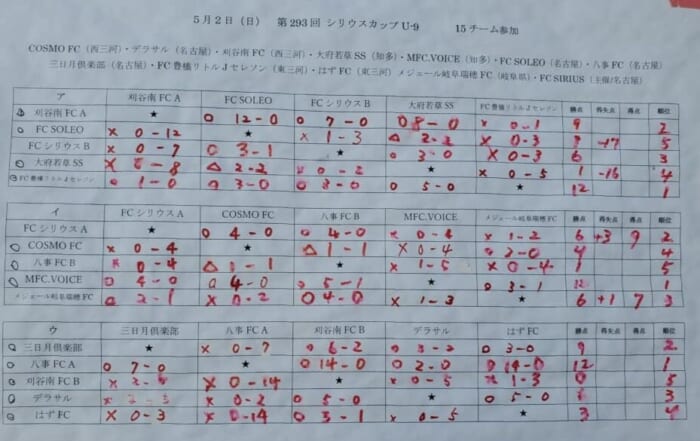 5月2日（日） 第293回 シリウスカップU-9 15チーム参加
COSMO FC（西三河）・デラサル（名古屋）・刈谷南FC（西三河）・大府若草SS（知多）・MFC.VOICE（知多）・FC SOLEO（名古屋）・八事FC（名古屋）
三日月倶楽部（名古屋）・FC豊橋リトルJセレソン（東三河）・はずFC（東三河）メジェール岐阜瑞穂FC（岐阜県）・FC SIRIUS（主催/名古屋）
ア 刈谷南FC A FC SOLEO FCシリウスB 大府若草SS FC豊橋リトルJセレソン 勝点 得失点 得点 順位
刈谷南FC A ★ o 12-0 o 7-0 o 8-0 x 0-1 9 2
FC SOLEO x 0-12 ★ x 1-3 △ 2-2 x 0-3 -17 5
FCシリウスB x 0-7 o 3-1 ★ o 3-0 x 0-3 6 3
大府若草SS x 0-8 △ 2-2 x 0-2 ★ x 0-5 1 -16 4
FC豊橋リトルJセレソン o 1-0 o 3-0 o 3-0 o 5-0 ★ 12 1
イ FCシリウスA COSMO FC 八事FC B MFC.VOICE メジェール岐阜瑞穂FC 勝点 得失点 得点 順位
FCシリウスA ★ o 4-0 o 4-0 x 0-4 x 1-2 6 +3 9 2
COSMO FC x 0-4 ★ △ 1-1 x 0-4 2-0 4 4
八事FC B x 0-4 △ 1-1 ★ x 1-5 x 0-4 1 5
MFC.VOICE o 4-0 o 4-0 o 5-1 ★ o 3-1 12 1
メジェール岐阜瑞穂FC o 2-1 x 0-2 o 4-0 x 1-3 ★ 6 +1 7 3
ウ 三日月倶楽部 八事FC A 刈谷南FC B デラサル はずFC 勝点 得失点 得点 順位
三日月倶楽部 ★ x 0-7 o 6-2 o 3-2 o 3-0 9 2
八事FC A o 7-0 ★ o 14-0 o 2-0 o 14-0 12 1
刈谷南FC B x 2-6 x 0-14 ★ x 0-5 x 1-3 0 5
デラサル x 2-3 x 0-2 o 5-0 ★ o 5-0 6 3
はずFC x 0-3 x 0-14 o 3-1 x 0-5 ★ 3 4